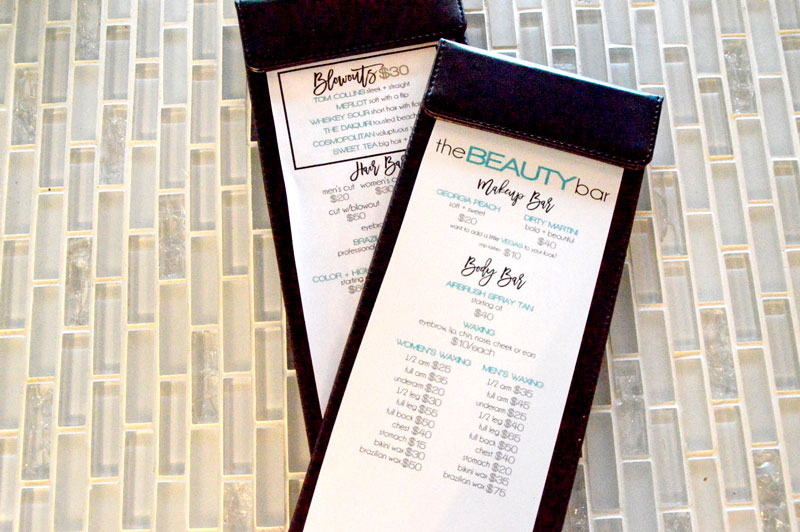 Blowouts $30
TOM COLLINS sleek + straight
MERLOT soft with a flip
WHISKEY SOUR short hair with
THE DAIQUIRI tousled
COSMOPOLITAN voluptuous
SWEET TEA big hair +
Hair Bar
men's cut women's
$20
cut w/blowout
$50
professional
COLOR +
starting
the BEAUTY bar
Makeup Bar
GEORGIA PEACH
soft + sweet
$20
DIRTY MARTINI
bold + beautiful
$40
want to add a little VEGAS to your look!
$10
Body Bar
AIRBRUSH SPRAY TAN
starting at
$40
WAXING
eyebrow, lip, chin, nose, cheek or ears
$10/each
WOMEN'S WAXING
1/2 arm $25
full arm $35
underarm $20
1/2 leg $30
full leg $55
full back $50
chest $40
stomach $15
bikini wax $30
brazilian wax $50
MEN'S WAXING
1/2 arm $35
full arm $45
underarm $25
1/2 leg $40
full leg $65
full back $50
chest $40
stomach $20
bikini wax $35
brazilian wax $75